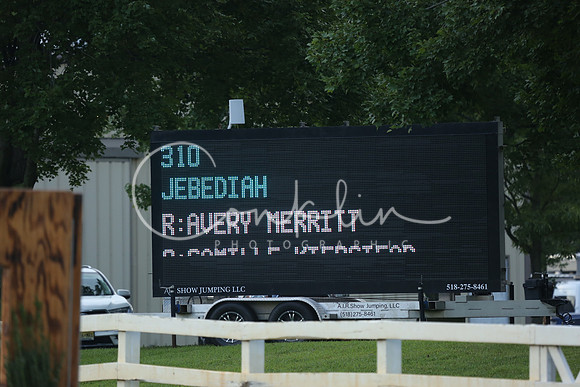 310
JEBEDIAH
R:AVERY MERRITT
Conklin
PHOTOGRAPHIC
SHOW JUMPING LLC
518-275-8461
A.I.R.Show Jumping, LLC
(518)275-8461